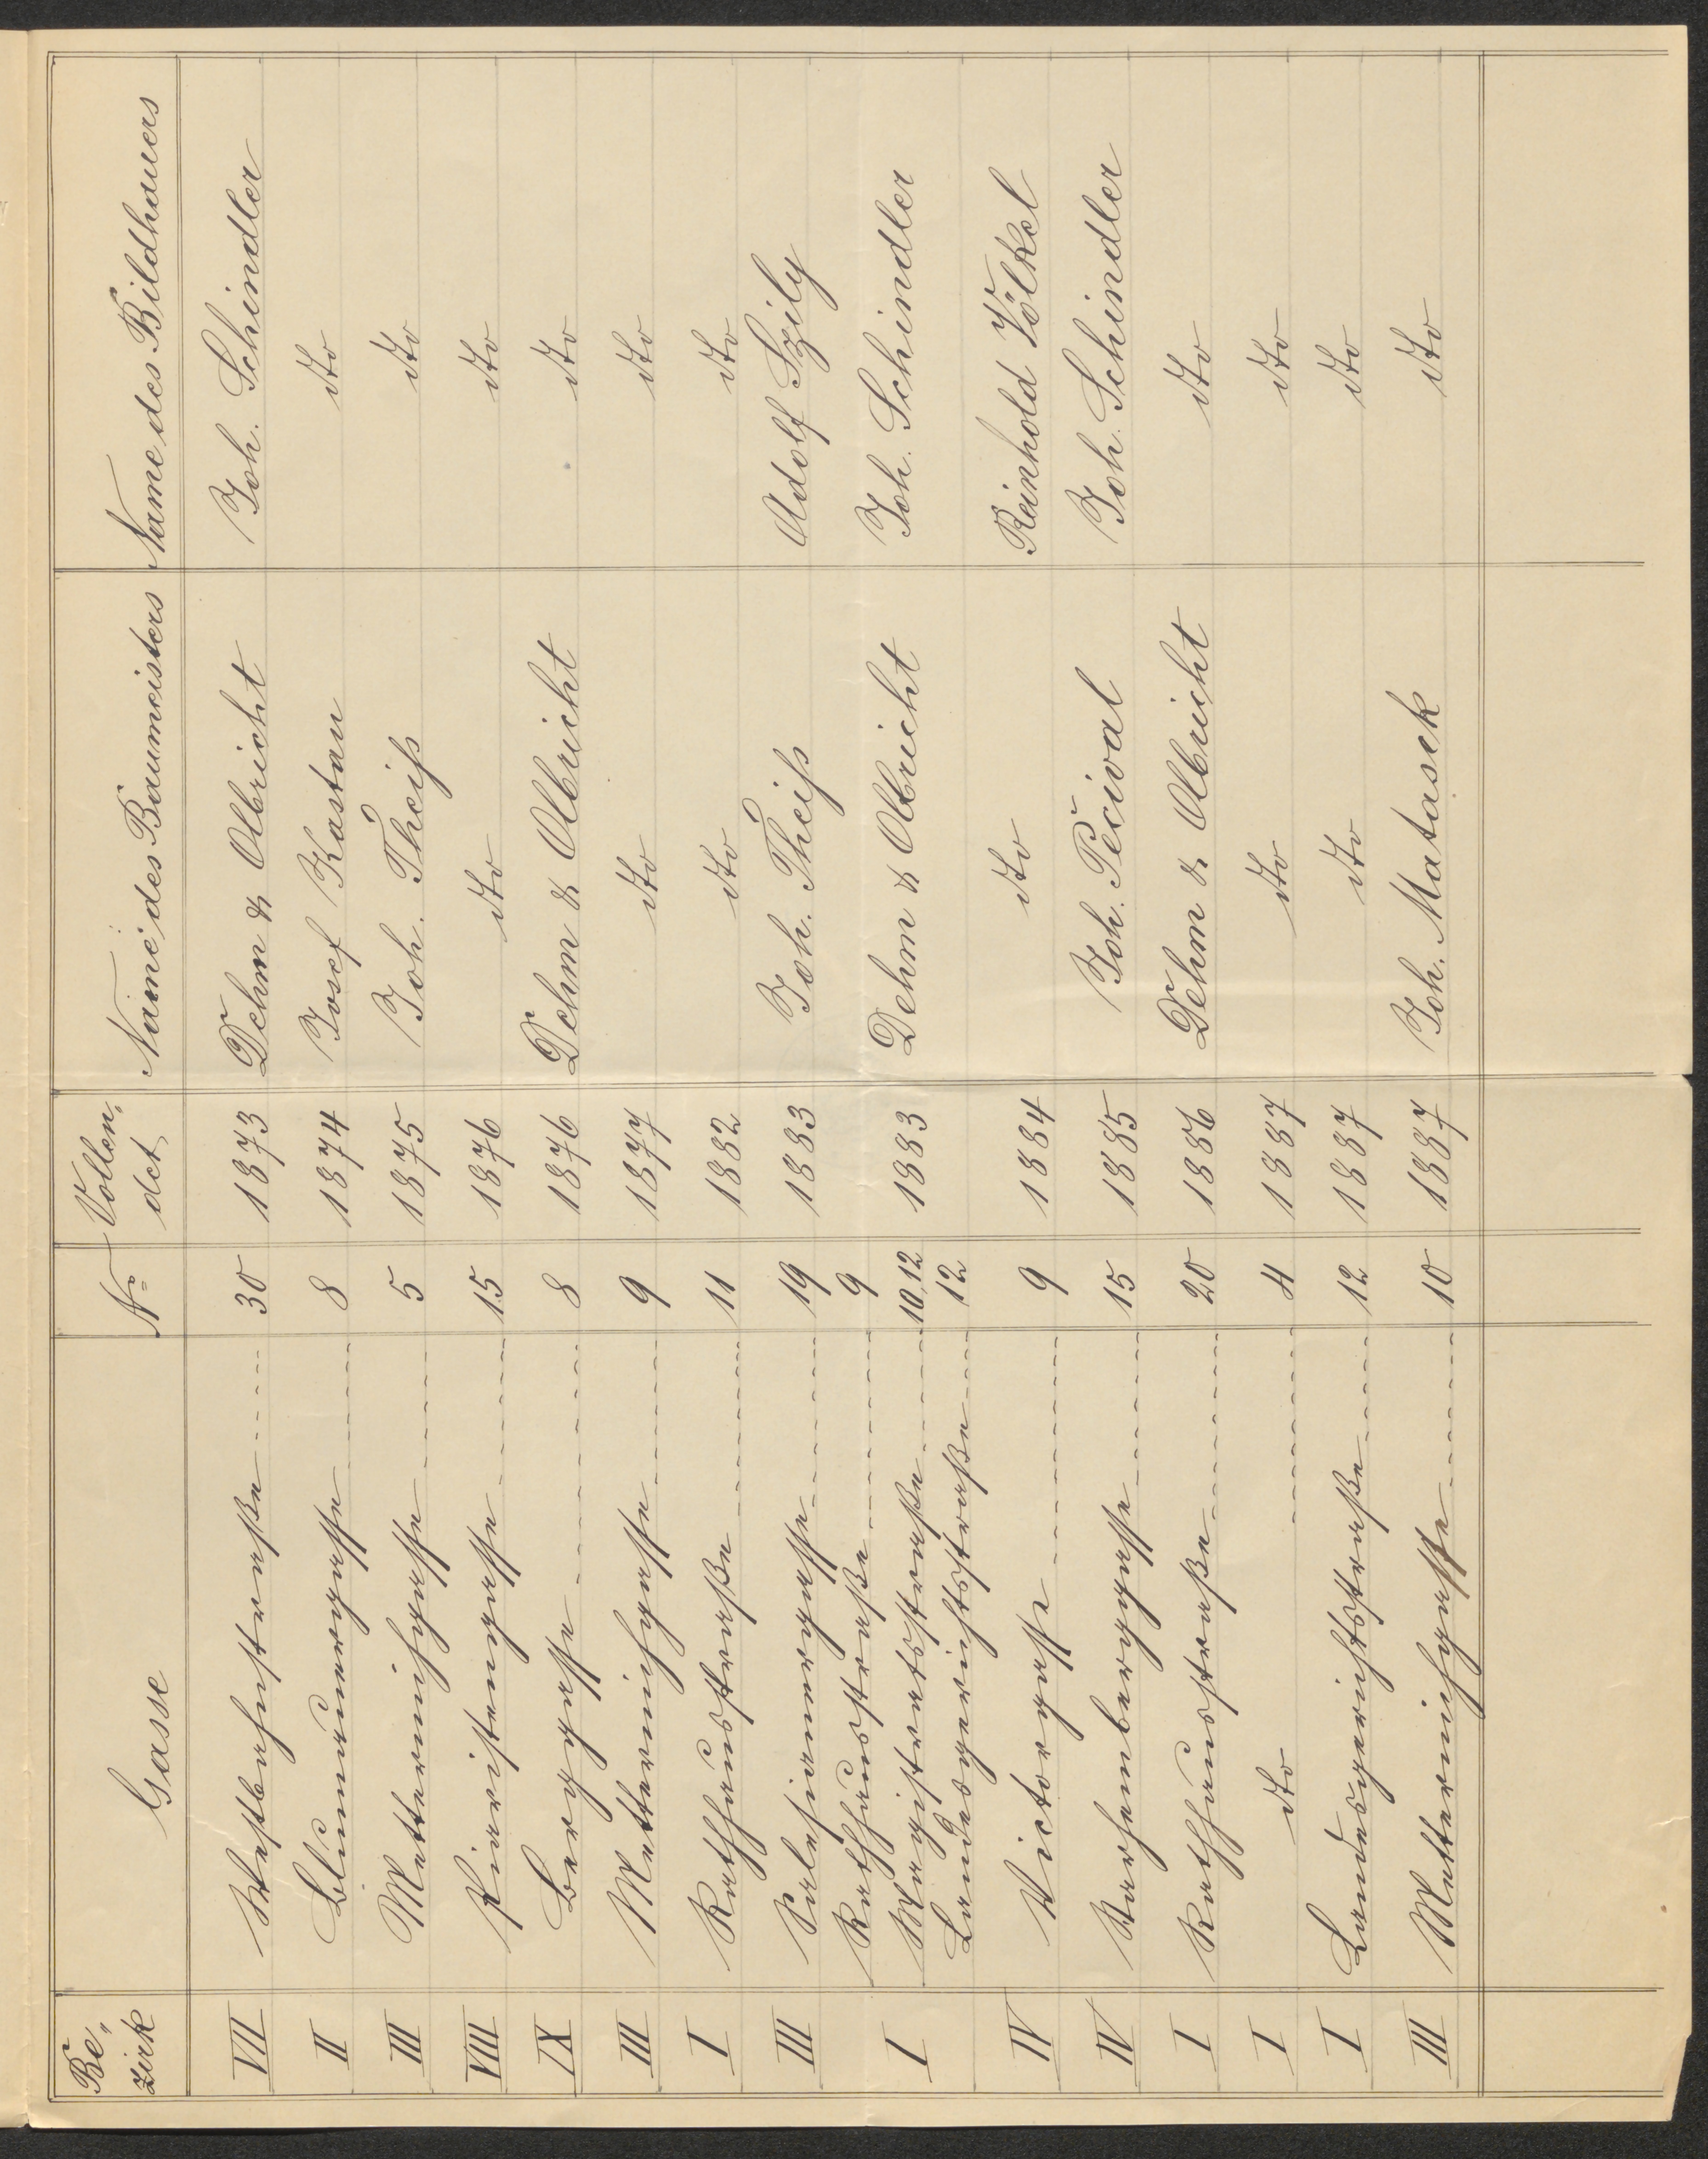 Be- zirk Gasse No Vollen- det Name des Baumeisters Name des Bildhauers
VII Westbahnstraße 30 1873 Dehm & Olbricht Joh. Schindler
II Blumauergasse 8 1874 Josef Kastan dto
III Metternichgasse 5 1875 Joh. Theiß dto
VIII Piaristengasse 15 1876 dto dto
IX Berggasse 8 1876 Dehm & Olbricht dto
III Metternichgasse 9 1877 dto dto
I Rathhausstraße 11 1882 dto dto
III Salesianergasse 19 1883 Joh. Theiß Adolf Szily
Rathhausstraße 9
I Magistratsstraße 10,12 1883 Dehm & Olbricht Joh. Schindler
Landesgerichtsstraße 12
IV Victorgasse 9 1884 dto Reinhold Völkel
IV Karhenberggasse 15 1885 Joh. Pečival Joh. Schindler
I Rathhausstraße 20 1886 Dehm & Olbricht dto
I dto 4 1887 dto dto
I Landesgerichtsstraße 12 1887 dto dto
III Metternichgasse 10 1887 Joh. Matasek dto